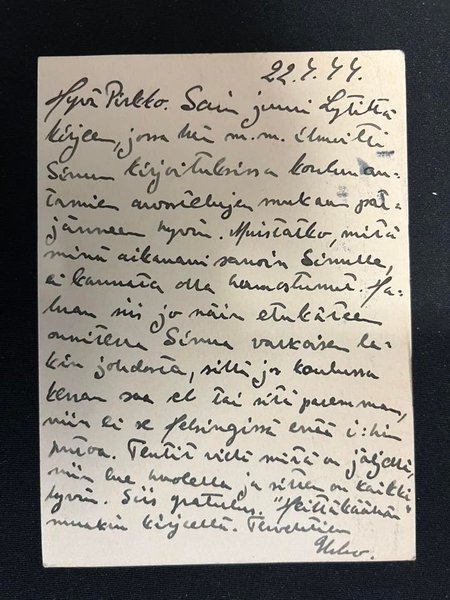 22.4.44.
Hyvä Pirkko. Sain juuri Lytiltä
kirjeen, jossa hän m.m. ilmoitti
Sinun kirjoituksissa koulun an-
tamien arvostelujen mukaan pär-
jänneen hyvin. Muistatko, mitä
minä aikanani sanoin Sinulle,
ei kannata olla hermostunut. Ha-
luan siis jo näin etukäteen
onnitella Sinua valkoisen la-
kin johdosta, sillä jos koulussa
kerran saa cl tai sitä paremman,
niin ei se Helsingissä enää i:hin
putoa. Tentit vielä mitä on jäljellä,
niin lue huolella ja sitten on kaikki
hyvin. Siis gratulor. "Heittäkäähän"
muakin kirjeellä. Tervehtien
Urho.